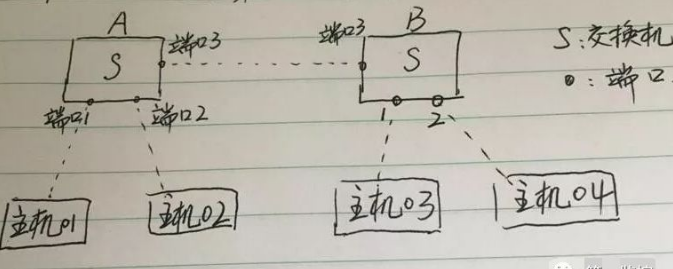 A
B
端口3
端口3
S
S
S:交换机
o:端口
端口1
端口2
1
2
主机01
主机02
主机03
主机04